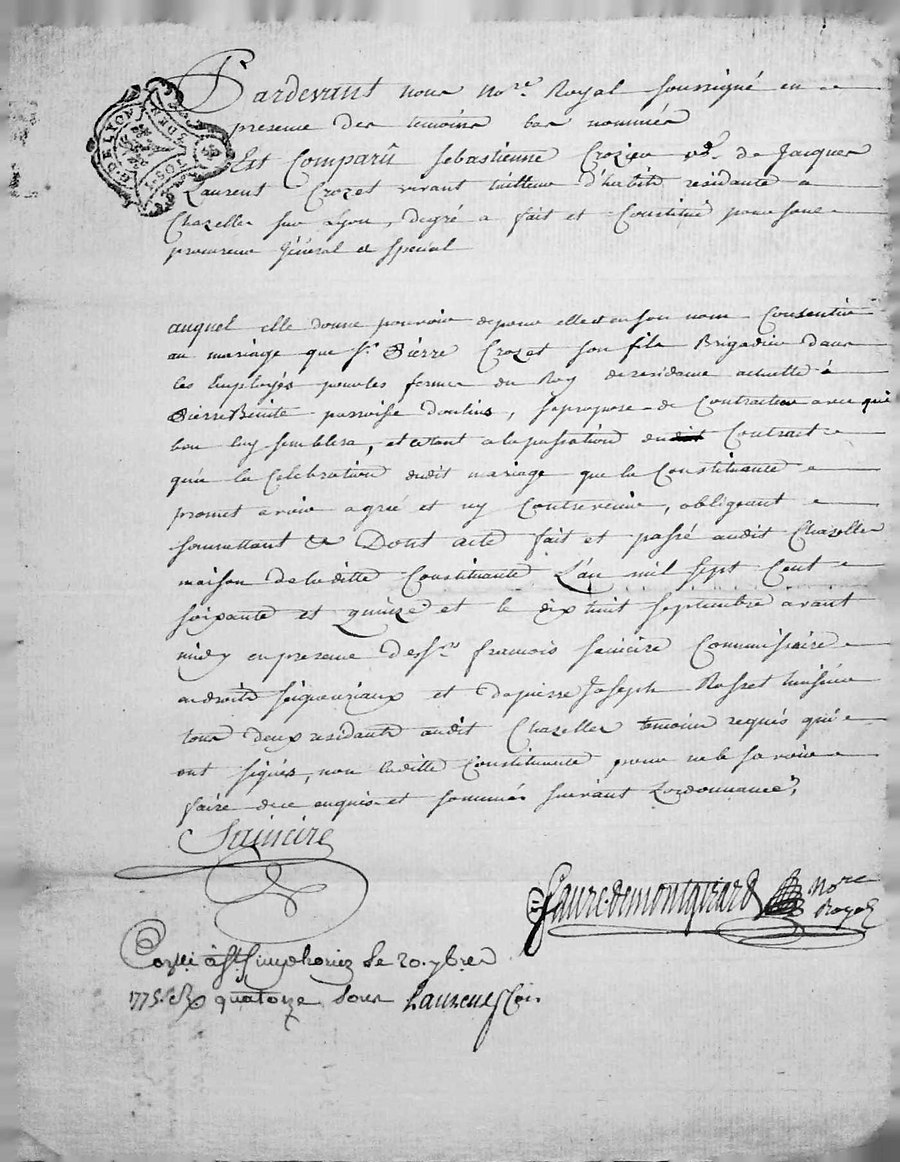 G. DE LYON
2 S. DE
Pardevant nous No.re Royal soussigné en
presence des temoins bas nommés
Est Comparû Sebastienne Crozier v.e de Jacques
Laurent Crozet vivant tailleur d'habits residante a
Chazelles sur Lyon, degré a fait et Constitué pour son
procureur Général et Special
auquel elle donne pouvoir de pour elle et en son nom Consentir
au mariage que S.r Pierre Crozet son fils Brigadier dans
les Employés pour les fermes du Roy de residence actuelle à
Pierre Benite parroisse Doulins, se propose de Contracter avec qui
bon luy semblera, et ce tant a la passation du Contract
qu'a la Celebration dudit mariage que la Constituante
promet avoir agréé et ny Contrevenir, obligeant
soumettant &c Dont acte fait et passé audit Chazelles
maison de laditte Constituante L'an mil sept Cent
soixante et quinze et le dix huit septembre avant
midy en presence des S.rs francois Saincire Commissaire
en droits seigneuriaux et de pierre Joseph Rosset huissier
tous deux residants audit Chazelles temoins requis qui
ont signés, non laditte Constituante pour ne le savoir
faire de ce enquise et sommée suivant Lordonnance,
Saincire
Faure demontgirard No.re
Royal
Con.lé à S.t Simphorien le 20. 7bre
1775. R quatorze sous Laurenson